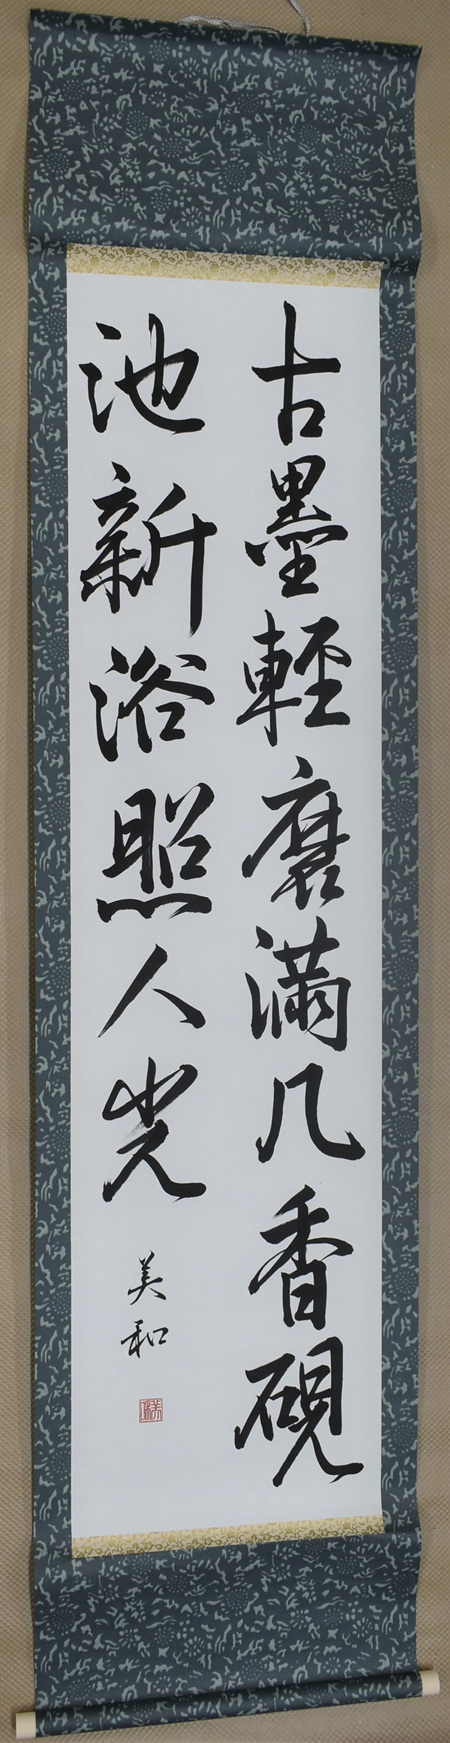 古墨輕磨滿几香硯
池新浴照人光
美和